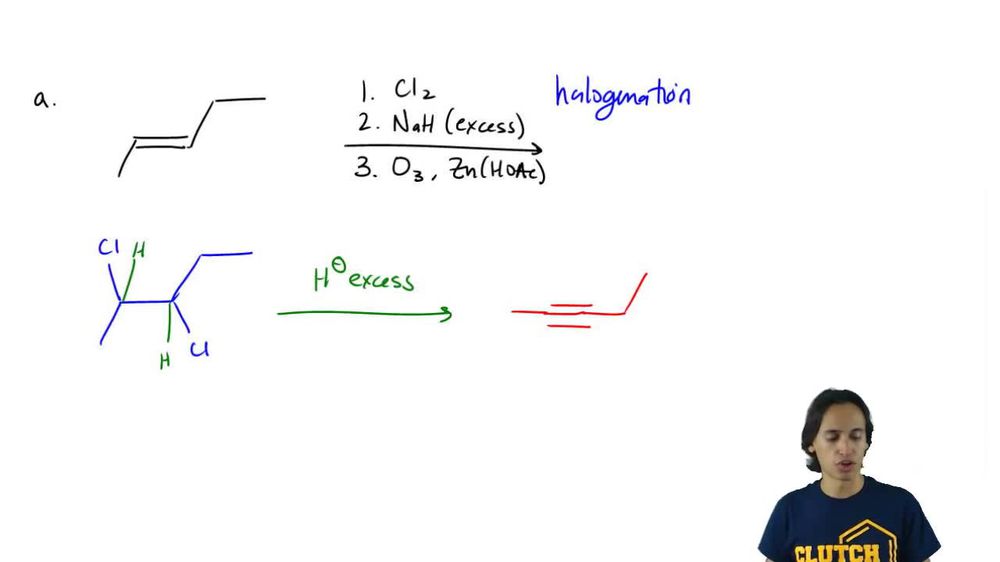 a.
1. Cl₂
2. NaH (excess)
3. O₃, Zn(HOAc)
halogenation
Cl H
H Cl
H⊖ excess
CLUTCH